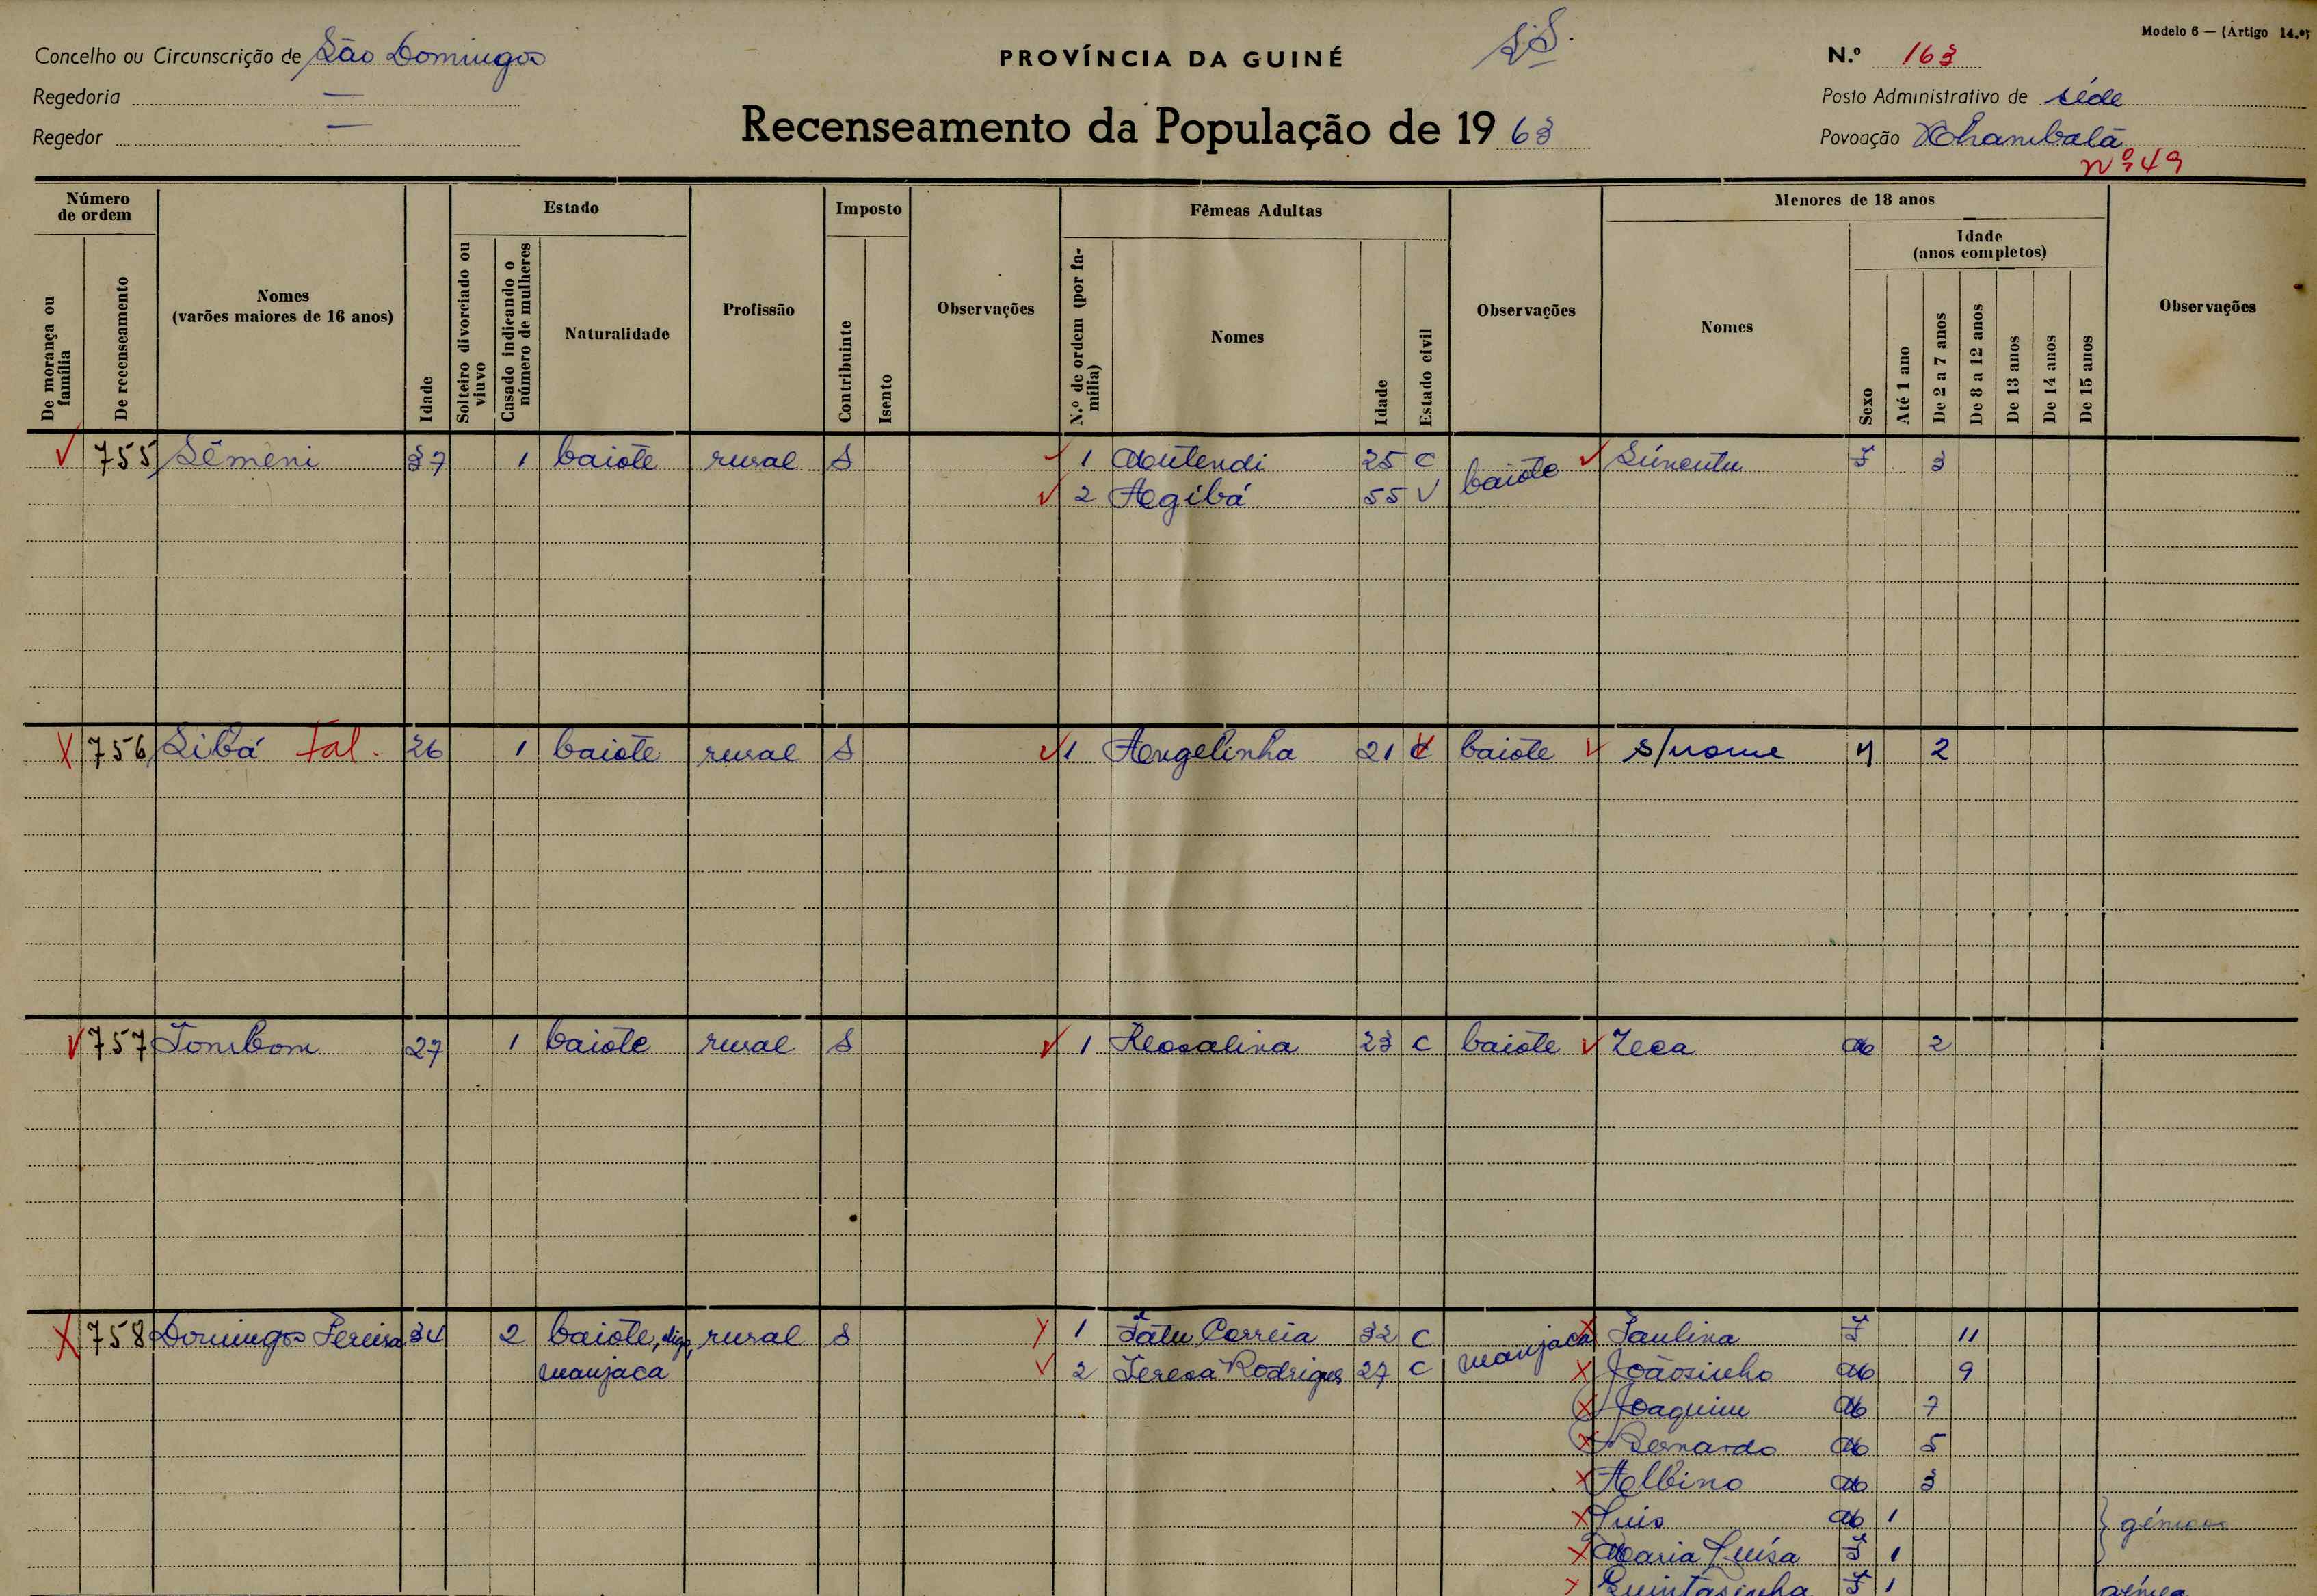 Modelo 6 — (Artigo 14.º)
Concelho ou Circunscrição de São Domingos
PROVÍNCIA DA GUINÉ
N.º 163
Regedoria —
Posto Administrativo de séde
Regedor —
Recenseamento da População de 1963
Povoação
nº 49
Número de ordem
De morança ou família
De recenseamento
Nomes
(varões maiores de 16 anos)
Idade
Estado
Solteiro divorciado ou viuvo
Casado indicando o número de mulheres
Naturalidade
Profissão
Imposto
Contribuinte
Isento
Observações
Fêmeas Adultas
N.º de ordem (por família)
Nomes
Idade
Estado civil
Observações
Menores de 18 anos
Nomes
Sexo
Idade
(anos completos)
Até 1 ano
De 2 a 7 anos
De 8 a 12 anos
De 13 anos
De 14 anos
De 15 anos
Observações
755 Sêmeni 37 1 baiote rural S 1 25 C baiote F 3
2 Agibá 55 V
756 Sibá Fal. 26 1 baiote rural S 1 Angelinha 21 C baiote s/nome M 2
757 Tombom 27 1 baiote rural S 1 Rosalina 23 C baiote Zeca M 2
758 Domingos Pereira 34 2 baiote, digo, rural S 1 Fátu Correia 32 C manjaca Paulina F 11
manjaca 2 Teresa Rodrigues 27 C Joãosinho M 9
Joaquim M 7
Bernardo M 5
Albino M 3
Luis M 1 } gémeos
Maria Luísa F 1
Quintasinha F 1